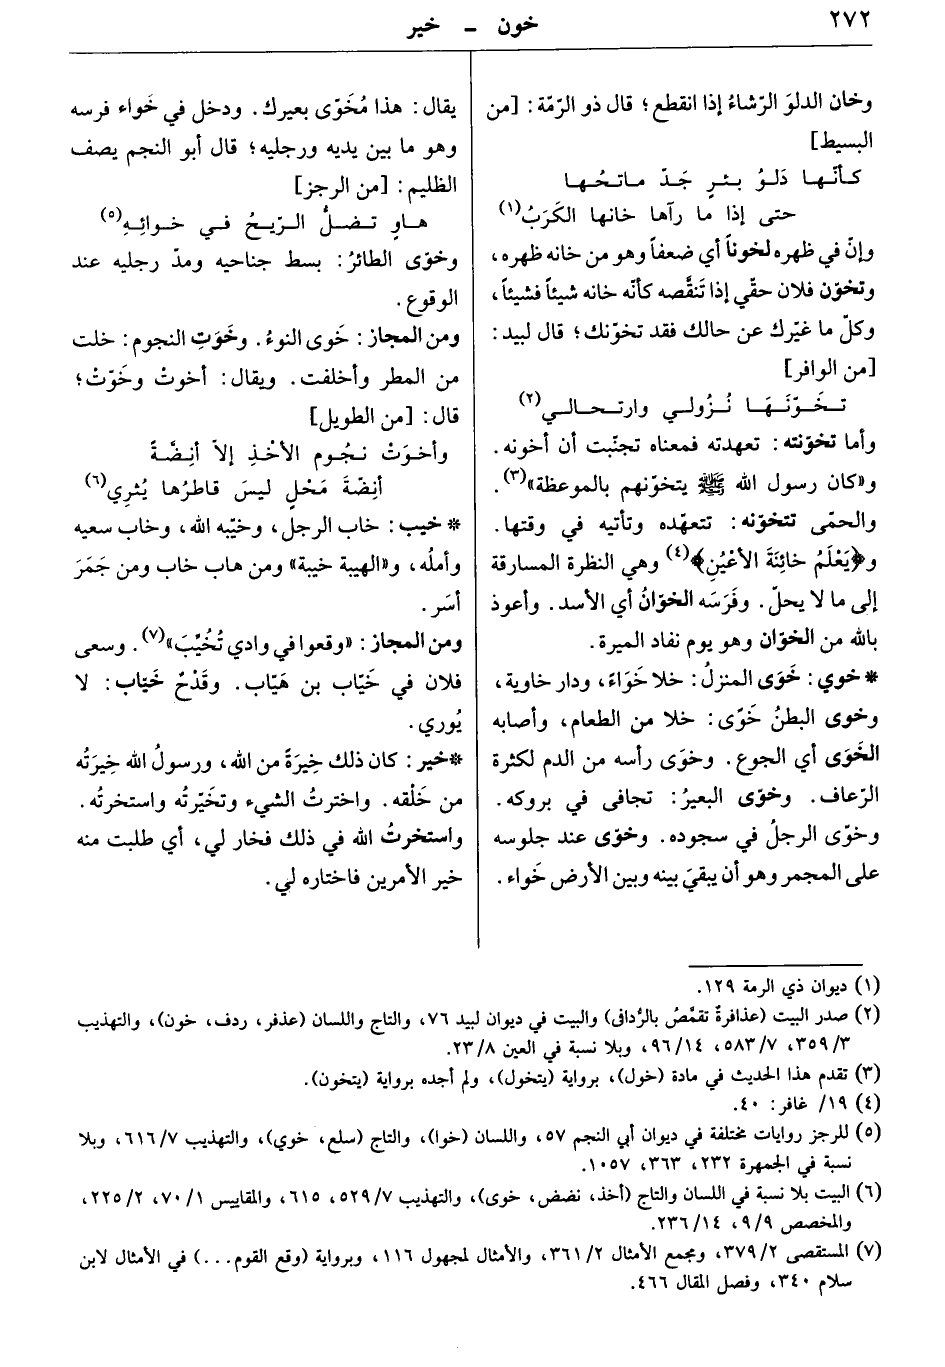 ٢٧٢
خون - خير
وخان الدلوَ الرّشاءُ إذا انقطع؛ قال ذو الرّمّة: [من
البسيط]
كـأنّـهـا دَلـوُ بـئـرٍ جَـدّ مـاتـحُـهـا
حتى إذا ما رآها خانها الكَرَبُ(١)
وإنّ في ظهره لخوناً أي ضعفاً وهو من خانه ظهره،
وتخوّن فلان حقّي إذا تَنقَّصه كأنّه خانه شيئاً فشيئاً،
وكلّ ما غيّرك عن حالك فقد تخوّنك؛ قال لبيد:
[من الوافر]
تـخَـوّنَـهَـا نُـزُولـي وارتـحـالـي(٢)
وأما تخوّنته: تعهدته فمعناه تجنّبت أن أخونه.
و«كان رسول الله ﷺ يتخوّنهم بالموعظة»(٣).
والحمّى تتخوّنه: تتعهّده وتأتيه في وقتها.
و﴿يَعْلَمُ خائِنَةَ الأعْيُنِ﴾(٤) وهي النظرة المسارقة
إلى ما لا يحلّ. وفَرَسَه الخوّانُ أي الأسد. وأعوذ
بالله من الخوّان وهو يوم نفاد الميرة.
* خوي: خَوَى المنزلُ: خلا خَوَاءً، ودار خاوية،
وخوى البطنُ خَوًى: خلا من الطعام، وأصابه
الخَوَى أي الجوع. وخوَى رأسه من الدم لكثرة
الرّعاف. وخوّى البعيرُ: تجافى في بروكه.
وخوّى الرجلُ في سجوده. وخوّى عند جلوسه
على المجمر وهو أن يبقيَ بينه وبين الأرض خَواء.
يقال: هذا مُخَوّى بعيرك. ودخل في خَواء فرسه
وهو ما بين يديه ورجليه؛ قال أبو النجم يصف
الظليم: [من الرجز]
هـاوٍ تـضـلُّ الـرّيـحُ فـي خـوائِـهِ(٥)
وخوّى الطائرُ: بسط جناحيه ومدّ رجليه عند
الوقوع.
ومن المجاز: خَوى النوءُ. وخَوَتِ النجوم: خلت
من المطر وأخلفت. ويقال: أخوتْ وخَوّتْ؛
قال: [من الطويل]
وأخوَتْ نـجُـوم الأخْـذِ إلاّ أنِـضّـةً
أنِضّةَ مَحْلٍ ليسَ قاطرُها يُثرِي(٦)
* خيب: خاب الرجل، وخيّبه الله، وخاب سعيه
وأملُه، و«الهيبة خيبة» ومن هاب خاب ومن جَمَرَ
أسَر.
ومن المجاز: «وقعوا في وادي تُخُيِّبَ»(٧). وسعى
فلان في خَيّاب بن هَيّاب. وقَدْحٌ خَيّاب: لا
يُوري.
*خير: كان ذلك خِيرَةً من الله، ورسولُ الله خِيرَتُه
من خَلْقه. واخترتُ الشيء وتخَيّرتُه واستخرتُه.
واستخرتُ الله في ذلك فخار لي، أي طلبت منه
خير الأمرين فاختاره لي.
(١) ديوان ذي الرمة ١٢٩.
(٢) صدر البيت (عذافرةٌ تقمَّصُ بالرُّداق) والبيت في ديوان لبيد ٧٦، والتاج واللسان (عذفر، ردف، خون)، والتهذيب
٣٥٩/٣، ٥٨٣/٧، ٩٦/١٤، وبلا نسبة في العين ٢٣/٨.
(٣) تقدم هذا الحديث في مادة (خول)، برواية (يتخول)، ولم أجده برواية (يتخون).
(٤) ١٩/ غافر: ٤٠.
(٥) للرجز روايات مختلفة في ديوان أبي النجم ٥٧، واللسان (خوا)، والتاج (سلع، خوي)، والتهذيب ٦١٦/٧، وبلا
نسبة في الجمهرة ٢٣٢، ٣٦٣، ١٠٥٧.
(٦) البيت بلا نسبة في اللسان والتاج (أخذ، نضض، خوى)، والتهذيب ٥٢٩/٧، ٦١٥، والمقاييس ٧٠/١، ٢٢٥/٢،
والمخصص ٩/٩، ٢٣٦/١٤.
(٧) المستقصى ٣٧٩/٢، ومجمع الأمثال ٣٦١/٢، والأمثال لمجهول ١١٦، وبرواية (وقع القوم...) في الأمثال لابن
سلام ٣٤٠، وفصل المقال ٤٦٦.